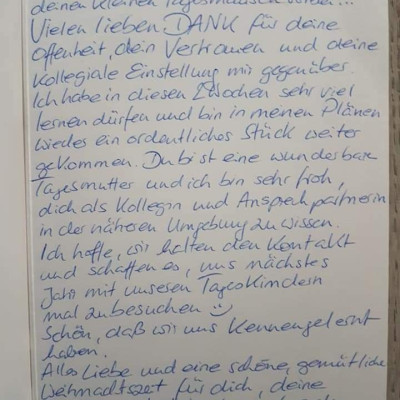 deinen kleinen Tagesmäusen
Vielen lieben DANK für deine
Offenheit, dein Vertrauen und deine
Kollegiale Einstellung mir gegenüber.
Ich habe in diesen Wochen sehr viel
lernen dürfen und bin in meinen Plänen
wieder ein ordentliches Stück weiter
gekommen. Du bist eine wunderbare
Tagesmutter und ich bin sehr froh,
dich als Kollegin und Ansprechpartnerin
in der näheren Umgebung zu wissen.
Ich hoffe, wir halten den Kontakt
und schaffen es, uns nächstes
Jahr mit unseren Tageskindern
mal zu besuchen
Schön, daß wir uns kennengelernt
haben.
Alles Liebe und eine schöne, gemütliche
Weihnachtszeit für dich, deine